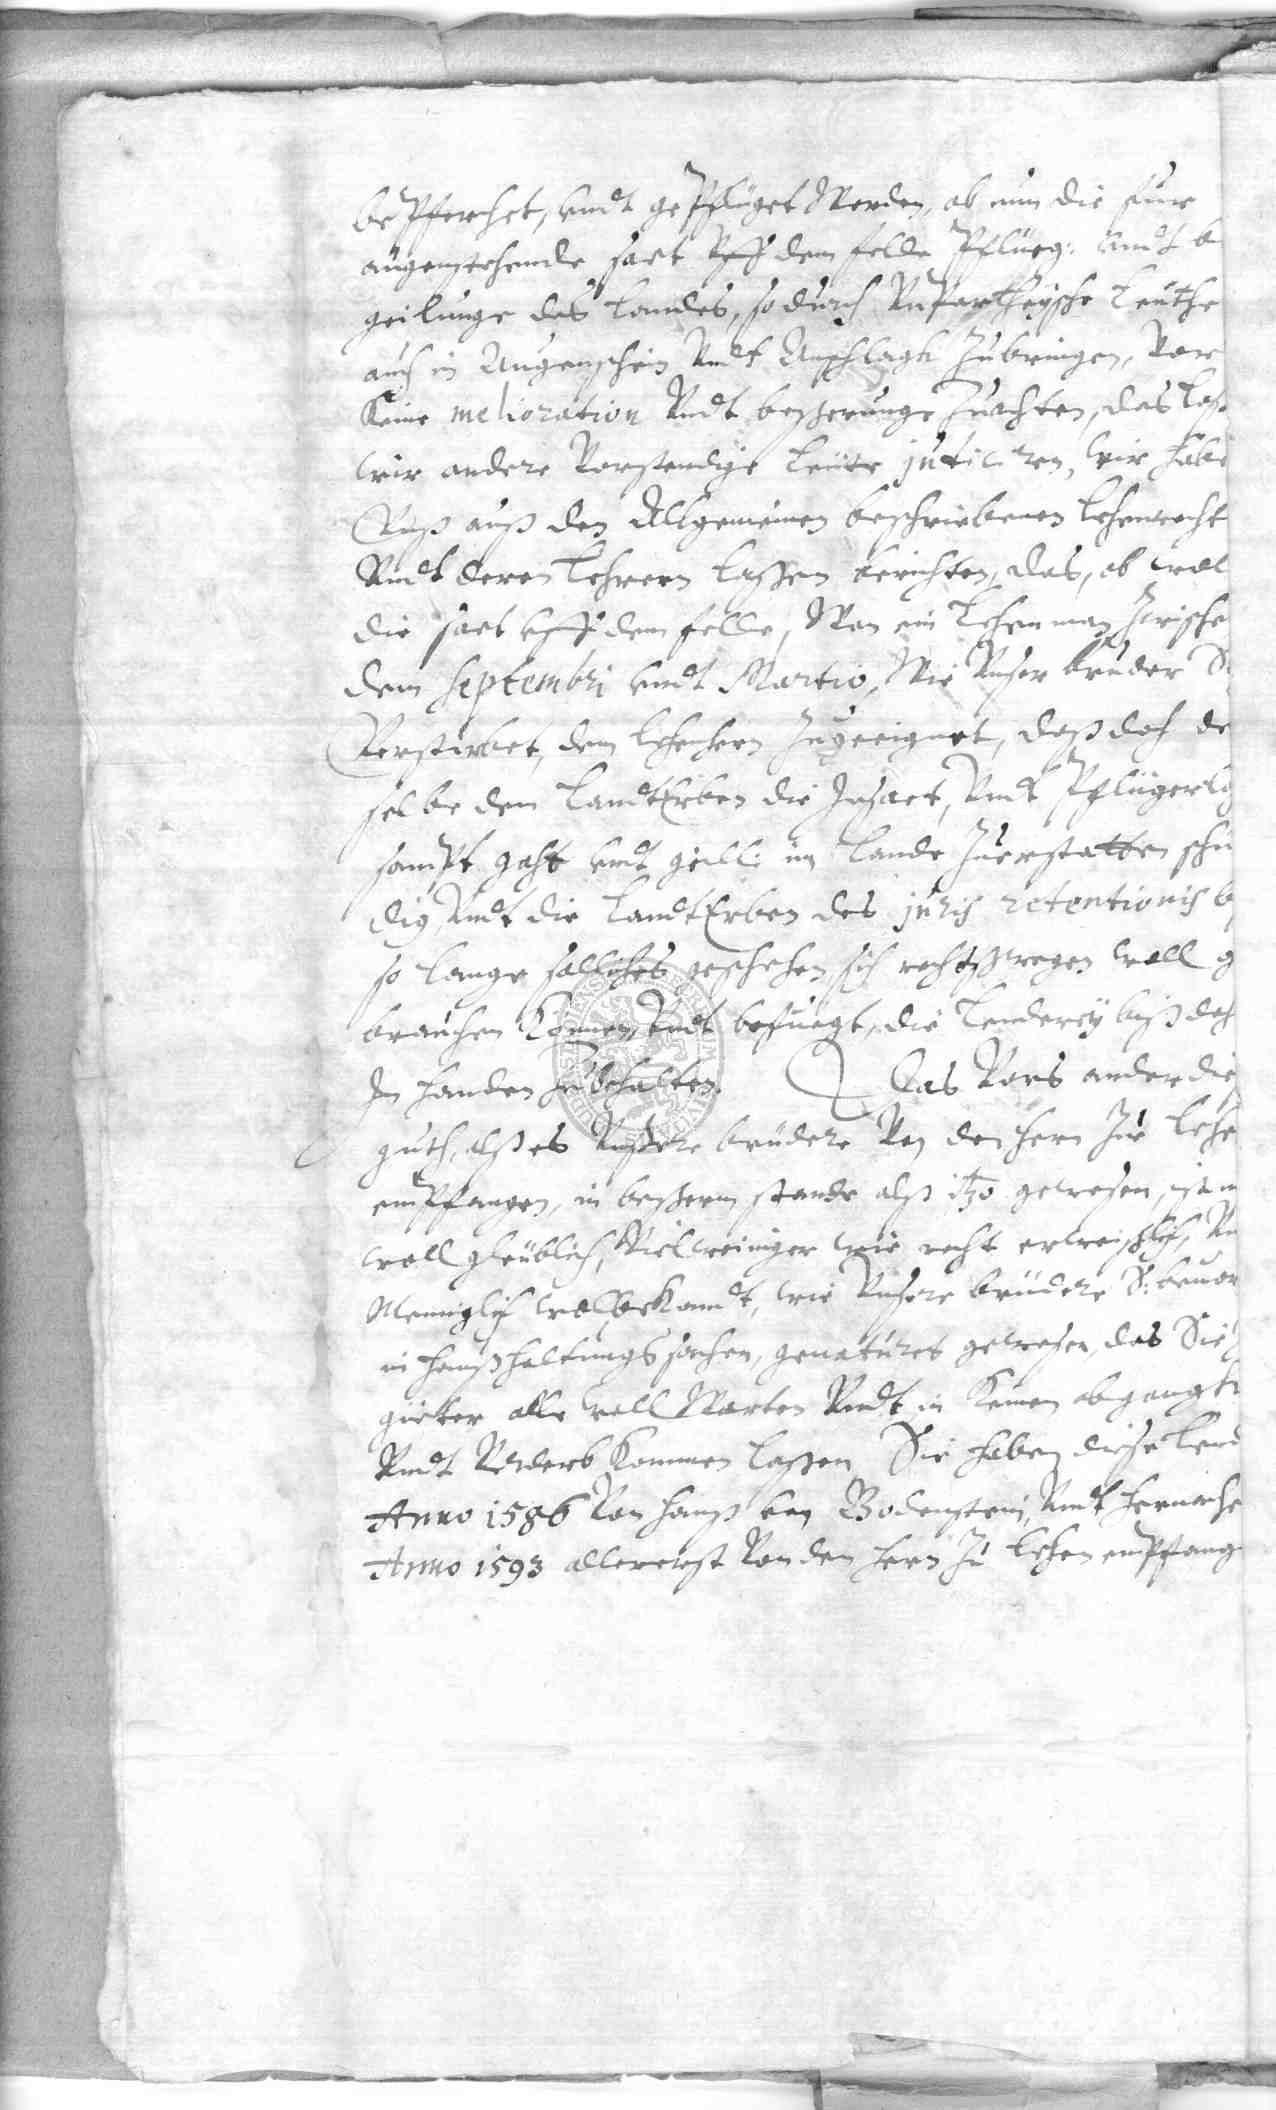 bepferchet, undt gepflüget Werden, ob nun die fuer
augenstehende saet uff dem felde Pflueg: undt b
geilunge des Landes, so durch Unpartheysche Leuthe
auch in Augenschein Undt Anschlagk zubringen, Vor
Keine melioration Undt beßerunge zuachten, das laß
wir andere Vorstendige Leute judiciren, wir habe
Unß auß den Allgemeinen beschriebenen Lehenrecht
Undt deren Lehrern laßen berichten, das, ob woll
die saet uff dem felde, Wan ein Lehenman zwische
dem Septembri undt Martio, Wie Unser bruder S
Verstirbet, dem Lehenhern zugeeignet, daß doch de
selbe den LandtErben die Insaet, Undt Pflügerlo
sampt gahr undt geill: im Lande zuerstatten schu
dig, Undt die LandtErben des juris retentionis b
so lange solliches geschehen, sich rechtßwegen woll g
brauchen Können, Undt befuegt, die Lenderey biß dah
In handen zubehalten. Das Vors ander die
guth, alß es Unsere brüdere Von den hern zue Lehe
empfangen, in beßerm stande alß itzo gewesen, ist n
woll gleublich, Viel weiniger wie recht erweißlich, Un
Menniglich wolbekandt, wie Unsere brüdere S. bevor
in haußhaltungs sachen, genaturet gewesen, das Sie
güeter alle woll Warten Undt in Keinen abgangk
Undt Verderb Kommen laßen, Sie haben diese Lend
Anno 1586 Von Hanß von Bodenstein, Undt hernache
Anno 1593 allererst Von den hern zu Lehen empfang